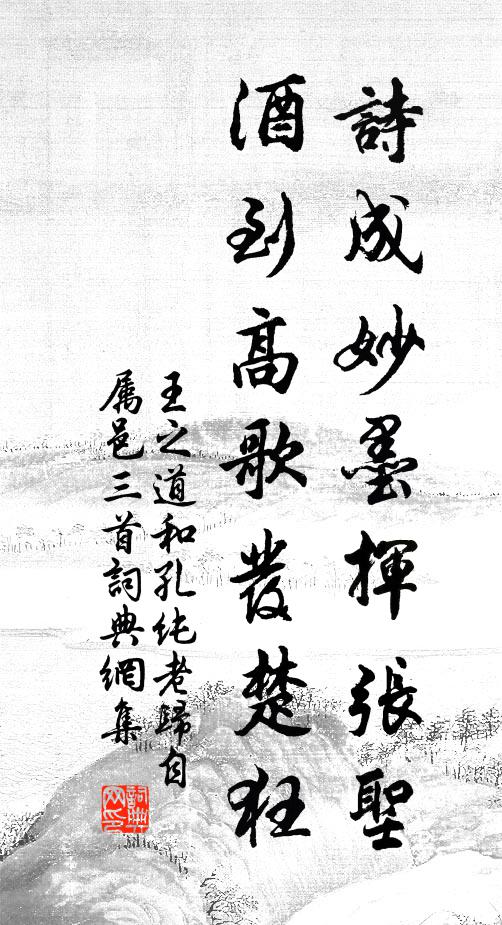 詩成妙墨揮張聖
酒到高歌發楚狂
王之道和孔純老歸自
属邑三首詞典網集